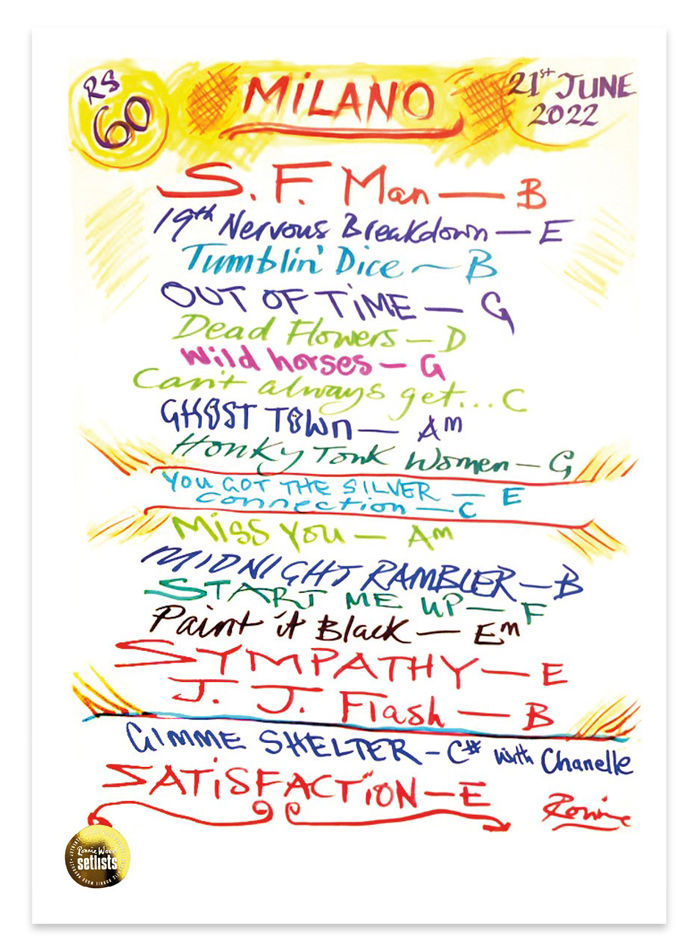 RS
60
MiLANO
21st JUNE
2022
S. F. Man — B
19th Nervous Breakdown — E
Tumblin' Dice ~ B
OUT OF TiME — G
Dead Flowers — D
Wild horses — G
Can't always get... C
GHOST TOWN — Am
Honky Tonk Women — G
YOU GOT THE SILVER — E
Connection — C
Miss You — Am
MIDNIGHT RAMBLER — B
START ME UP — F
Paint it Black — Em
SYMPATHY — E
J. J. Flash — B
GIMME SHELTER - C# with Chanelle
SATiSFACTiON — E
Ronnie
Ronnie Wood
setlists